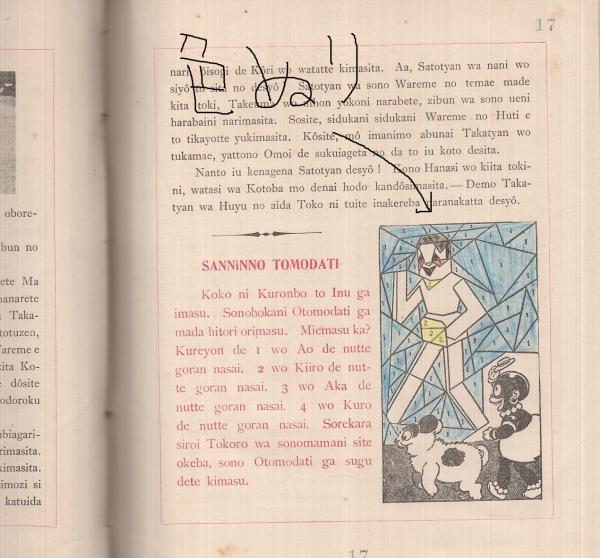 obore-
bun no
ete Ma
nanarete
Taka-
totuzen,
Wareme e
kita Ko-
e dôsite
odoroku
abiagari-
rimasita.
kimasita.
kimozi si
katuida
17
色ぬり
nari ôisogi de Kôri wo watatte kimasita. Aa, Satotyan wa nani wo
siyô to sita no desyô! Satotyan wa sono Wareme no temae made
kita toki, Takeuma wo nihon yokoni narabete, zibun wa sono ueni
harabaini narimasita. Sosite, sidukani sidukani Wareme no Huti e
to tikayotte yukimasita. Kôsite, mô imanimo abunai Takatyan wo
tukamae, yattono Omoi de sukuiageta no da to iu koto desita.
Nanto iu kenagena Satotyan desyô! Kono Hanasi wo kiita toki-
ni, watasi wa Kotoba mo denai hodo kandôsimasita.—Demo Taka-
tyan wa Huyu no aida Toko ni tuite inakereba naranakatta desyô.
SANNINNO TOMODATI
Koko ni Kuronbo to Inu ga
imasu. Sonohokani Otomodati ga
mada hitori orimasu. Miemasu ka?
Kureyon de 1 wo Ao de nutte
goran nasai. 2 wo Kiiro de nut-
te goran nasai. 3 wo Aka de
nutte goran nasai. 4 wo Kuro
de nutte goran nasai. Sorekara
siroi Tokoro wa sonomamani site
okeba, sono Otomodati ga sugu
dete kimasu.
17